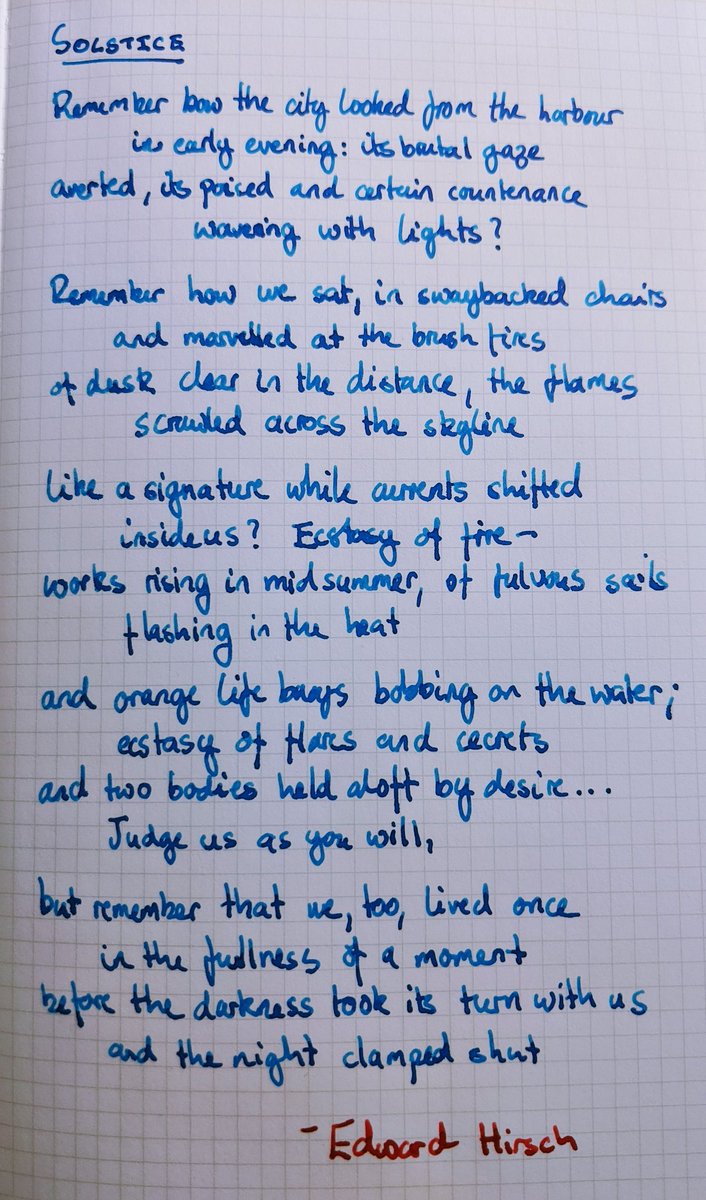 SOLSTICE
Remember how the city looked from the harbour
in early evening: its brutal gaze
averted, its poised and certain countenance
wavering with lights?
Remember how we sat, in swaybacked chairs
and marvelled at the brush fires
of dusk clear in the distance, the flames
scrawled across the skyline
like a signature while currents shifted
inside us? Ecstasy of fire-
works rising in midsummer, of fulvous sails
flashing in the heat
and orange life buoys bobbing on the water;
ecstasy of flares and secrets
and two bodies held aloft by desire...
Judge us as you will,
but remember that we, too, lived once
in the fullness of a moment
before the darkness took its turn with us
and the night clamped shut
- Edward Hirsch